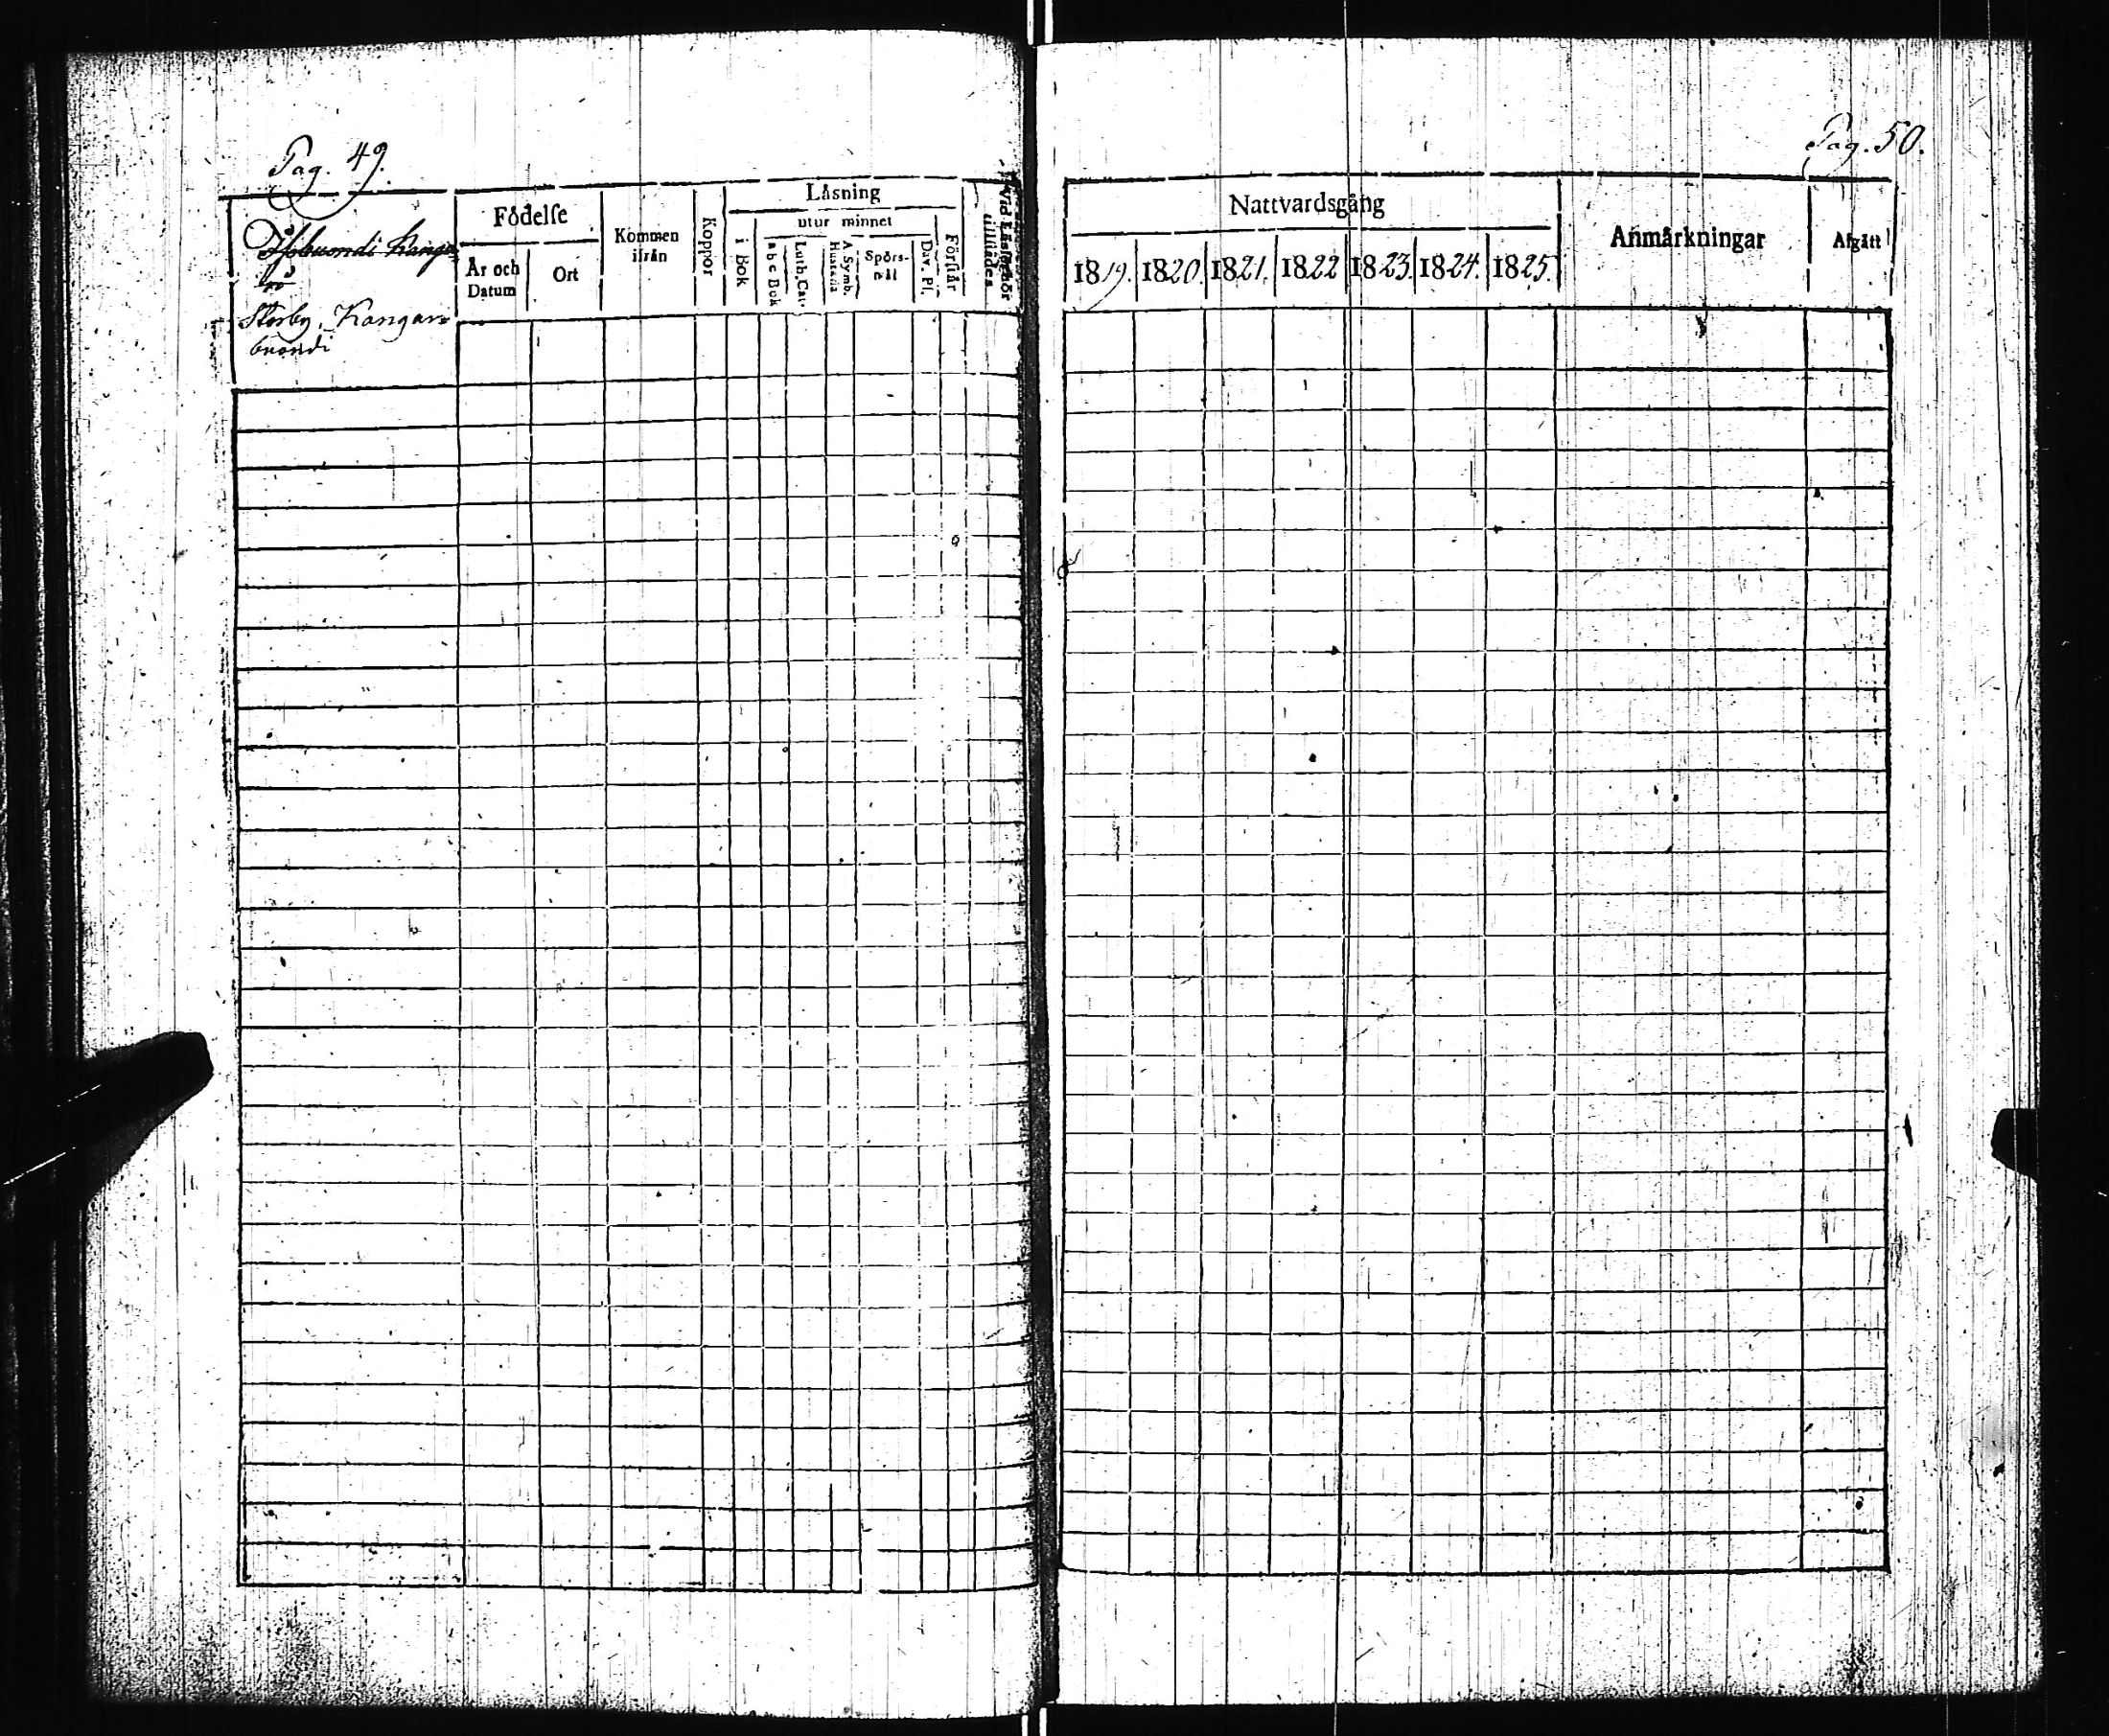 Pag. 49.
Födelſe
År och Datum
Ort
Kommen ifrån
Koppor
Läsning
utur minnet
i Bok
a b c Bok
Luth. Cat.
A. Symb.
Spörsmål
Dav. Pſ.
Förſtår
Vid Läsförhör tillſtädes
Storby, Kangar=
buondi
Pag. 50.
Nattvardsgång
1819. 1820. 1821. 1822 1823. 1824. 1825.
Anmärkningar
Afgått